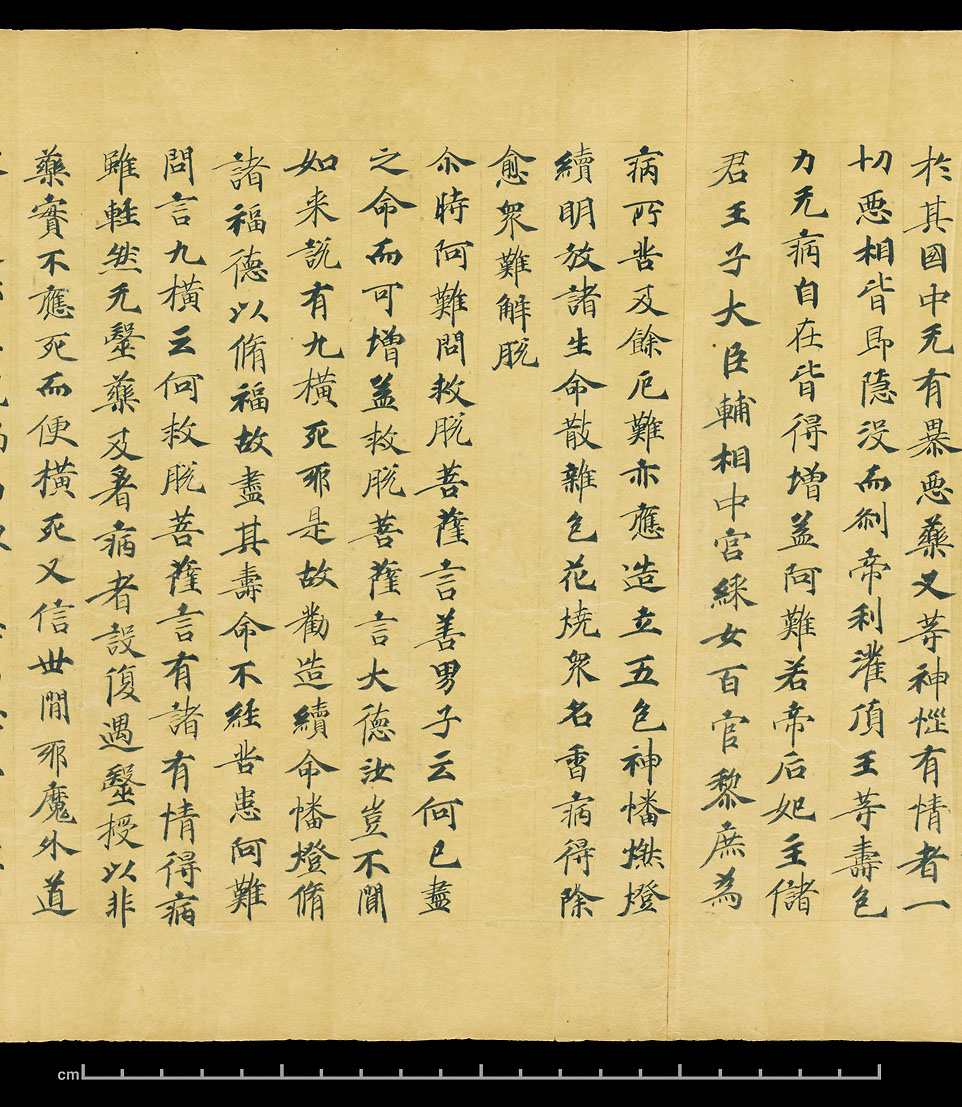 於其國中无有暴惡藥叉等神惱有情者一
切惡相皆即隱没而剎帝利灌頂王等壽色
力无病自在皆得增益阿難若帝后妃主儲
君王子大臣輔相中宮綵女百官黎庶為
病所苦及餘厄難亦應造立五色神幡燃燈
續明放諸生命散雜色花燒衆名香病得除
愈衆難解脫
尒時阿難問救脫菩薩言善男子云何已盡
之命而可增益救脫菩薩言大德汝豈不聞
如来說有九橫死耶是故勸造續命幡燈脩
諸福德以脩福故盡其壽命不經苦患阿難
問言九橫云何救脫菩薩言有諸有情得病
雖輕然无毉藥及看病者設復遇毉授以非
藥實不應死而便橫死又信世間耶魔外道
cm